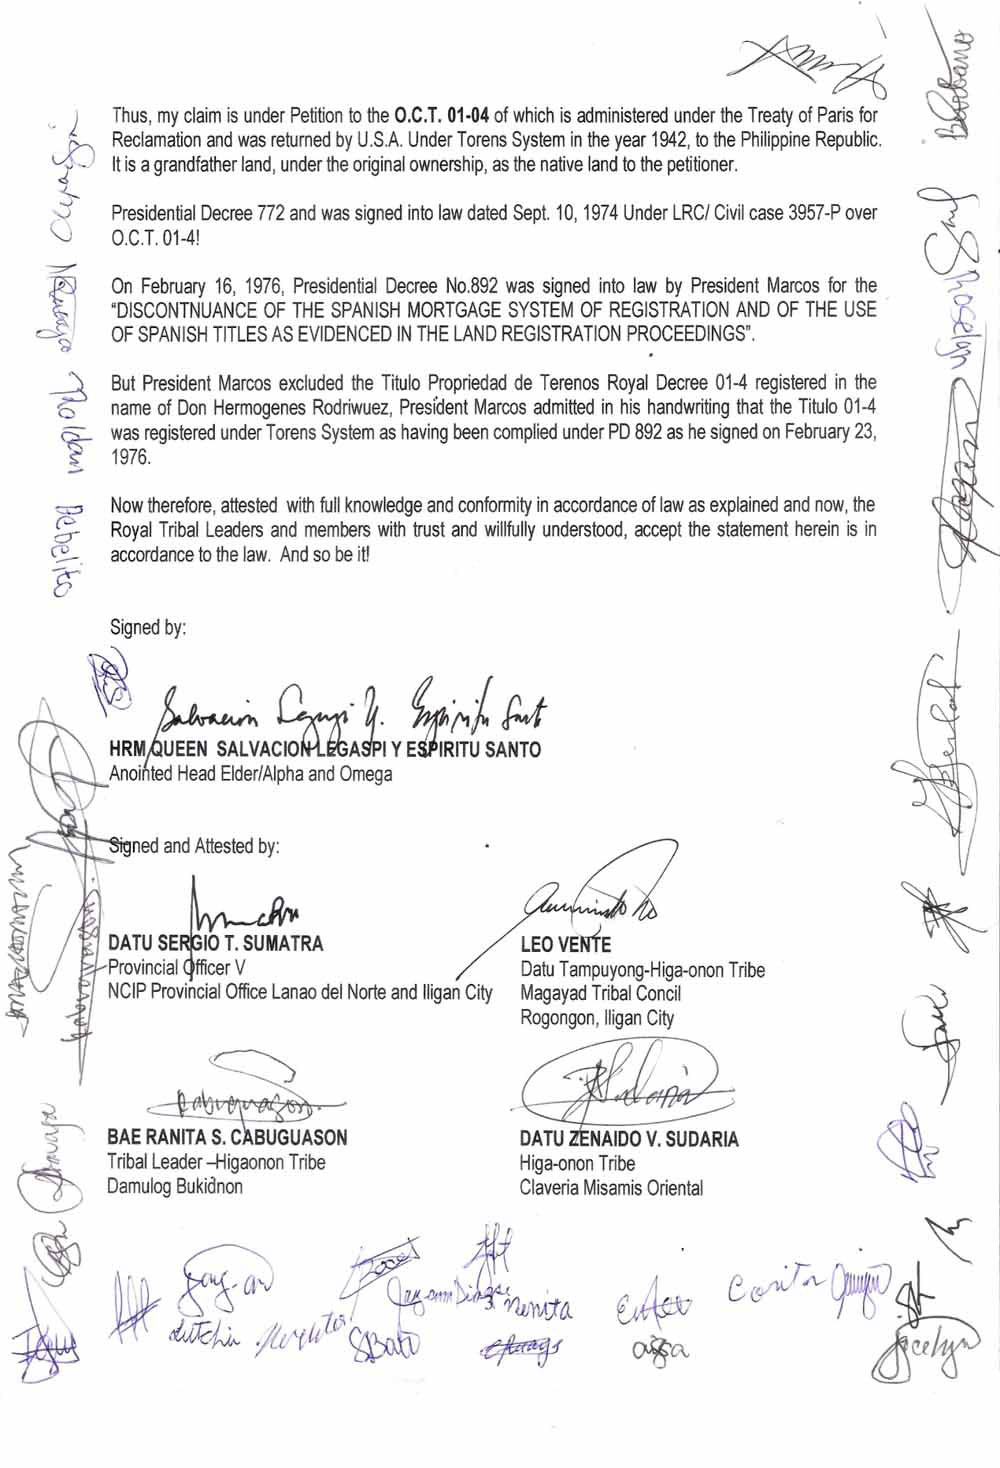 Thus, my claim is under Petition to the O.C.T. 01-04 of which is administered under the Treaty of Paris for
Reclamation and was returned by U.S.A. Under Torens System in the year 1942, to the Philippine Republic.
It is a grandfather land, under the original ownership, as the native land to the petitioner.
Presidential Decree 772 and was signed into law dated Sept. 10, 1974 Under LRC/ Civil case 3957-P over
O.C.T. 01-4!
On February 16, 1976, Presidential Decree No.892 was signed into law by President Marcos for the
“DISCONTNUANCE OF THE SPANISH MORTGAGE SYSTEM OF REGISTRATION AND OF THE USE
OF SPANISH TITLES AS EVIDENCED IN THE LAND REGISTRATION PROCEEDINGS”.
But President Marcos excluded the Titulo Propriedad de Terenos Royal Decree 01-4 registered in the
name of Don Hermogenes Rodriwuez, President Marcos admitted in his handwriting that the Titulo 01-4
was registered under Torens System as having been complied under PD 892 as he signed on February 23,
1976.
Now therefore, attested with full knowledge and conformity in accordance of law as explained and now, the
Royal Tribal Leaders and members with trust and willfully understood, accept the statement herein is in
accordance to the law. And so be it!
Signed by:
Salvacion Legaspi Y. Espiritu Santo
HRM QUEEN SALVACION LEGASPI Y ESPIRITU SANTO
Anointed Head Elder/Alpha and Omega
Signed and Attested by:
DATU SERGIO T. SUMATRA
Provincial Officer V
NCIP Provincial Office Lanao del Norte and Iligan City
LEO VENTE
Datu Tampuyong-Higa-onon Tribe
Magayad Tribal Concil
Rogongon, Iligan City
Rabuguason
BAE RANITA S. CABUGUASON
Tribal Leader –Higaonon Tribe
Damulog Bukidnon
Sudaria
DATU ZENAIDO V. SUDARIA
Higa-onon Tribe
Claveria Misamis Oriental
Nenita
aissa
Jocelyn
Roldan Rebelito
Barbano